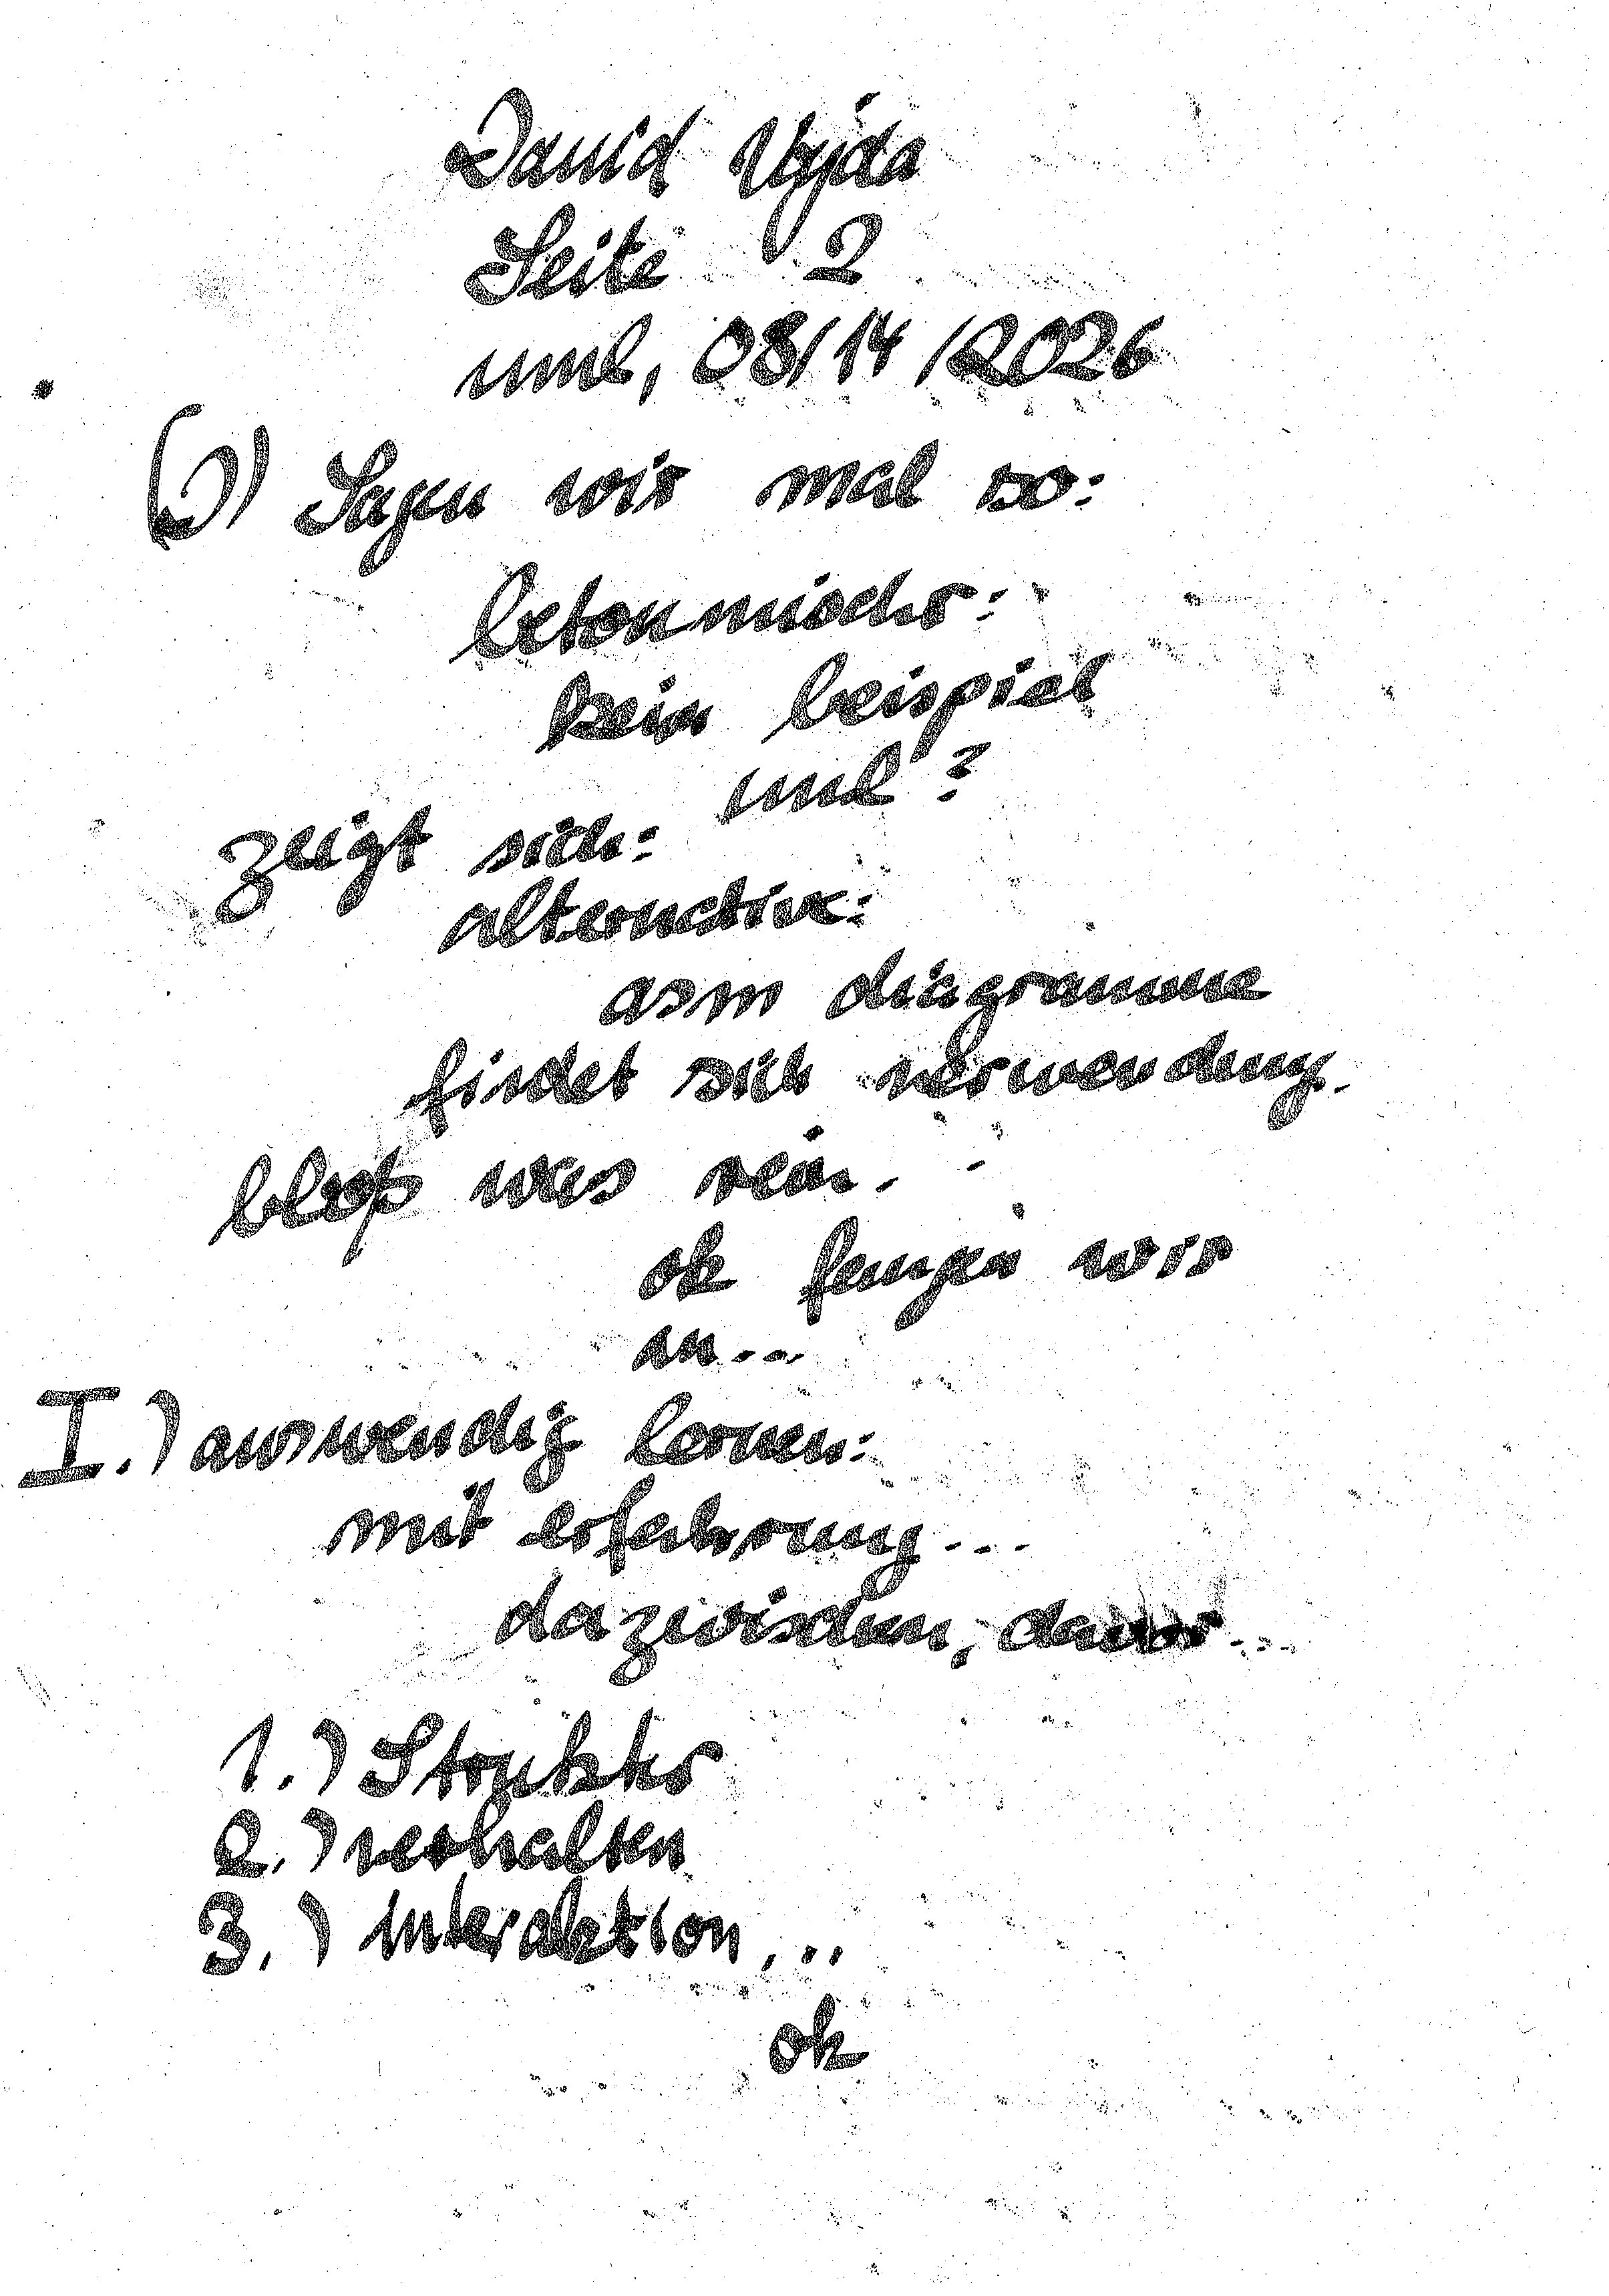 David Vajda
Seite 2
uml, 08/14/2026
Sagen wir mal so:
betonmischr:
kein beispiel
uml?
zeigt sich:
alternative:
asm diagramme
findet sich verwendung.
bloß was rein.
ok fangen wir
an...
I.) auswendig lernen:
mit erfahrung...
dazwischen, davor...
1.) Struktur
2.) verhalten
3.) interaktion, ..
ok